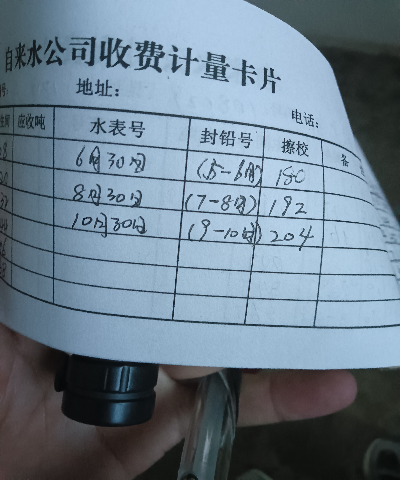 自来水公司收费计量卡片
号: 地址: 电话:
应收吨 水表号 封铅号 擦校 备
6月30日 (5-6月) 180
8月30日 (7-8月) 192
10月30日 (9-10月) 204